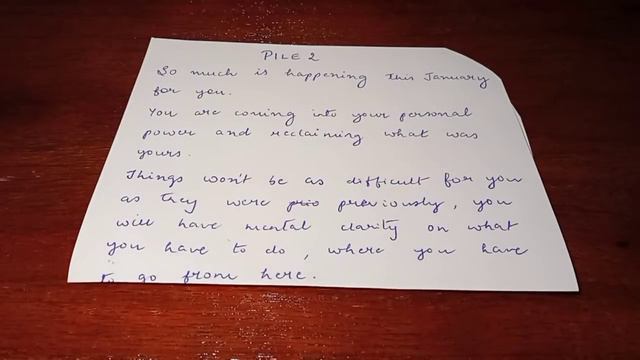 PILE 2
So much is happening this January
for you.
You are coming into your personal
power and reclaiming what was
yours.
Things won't be as difficult for you
as they were prio previously, you
will have mental clarity on what
you have to do, where you have
to go from here.